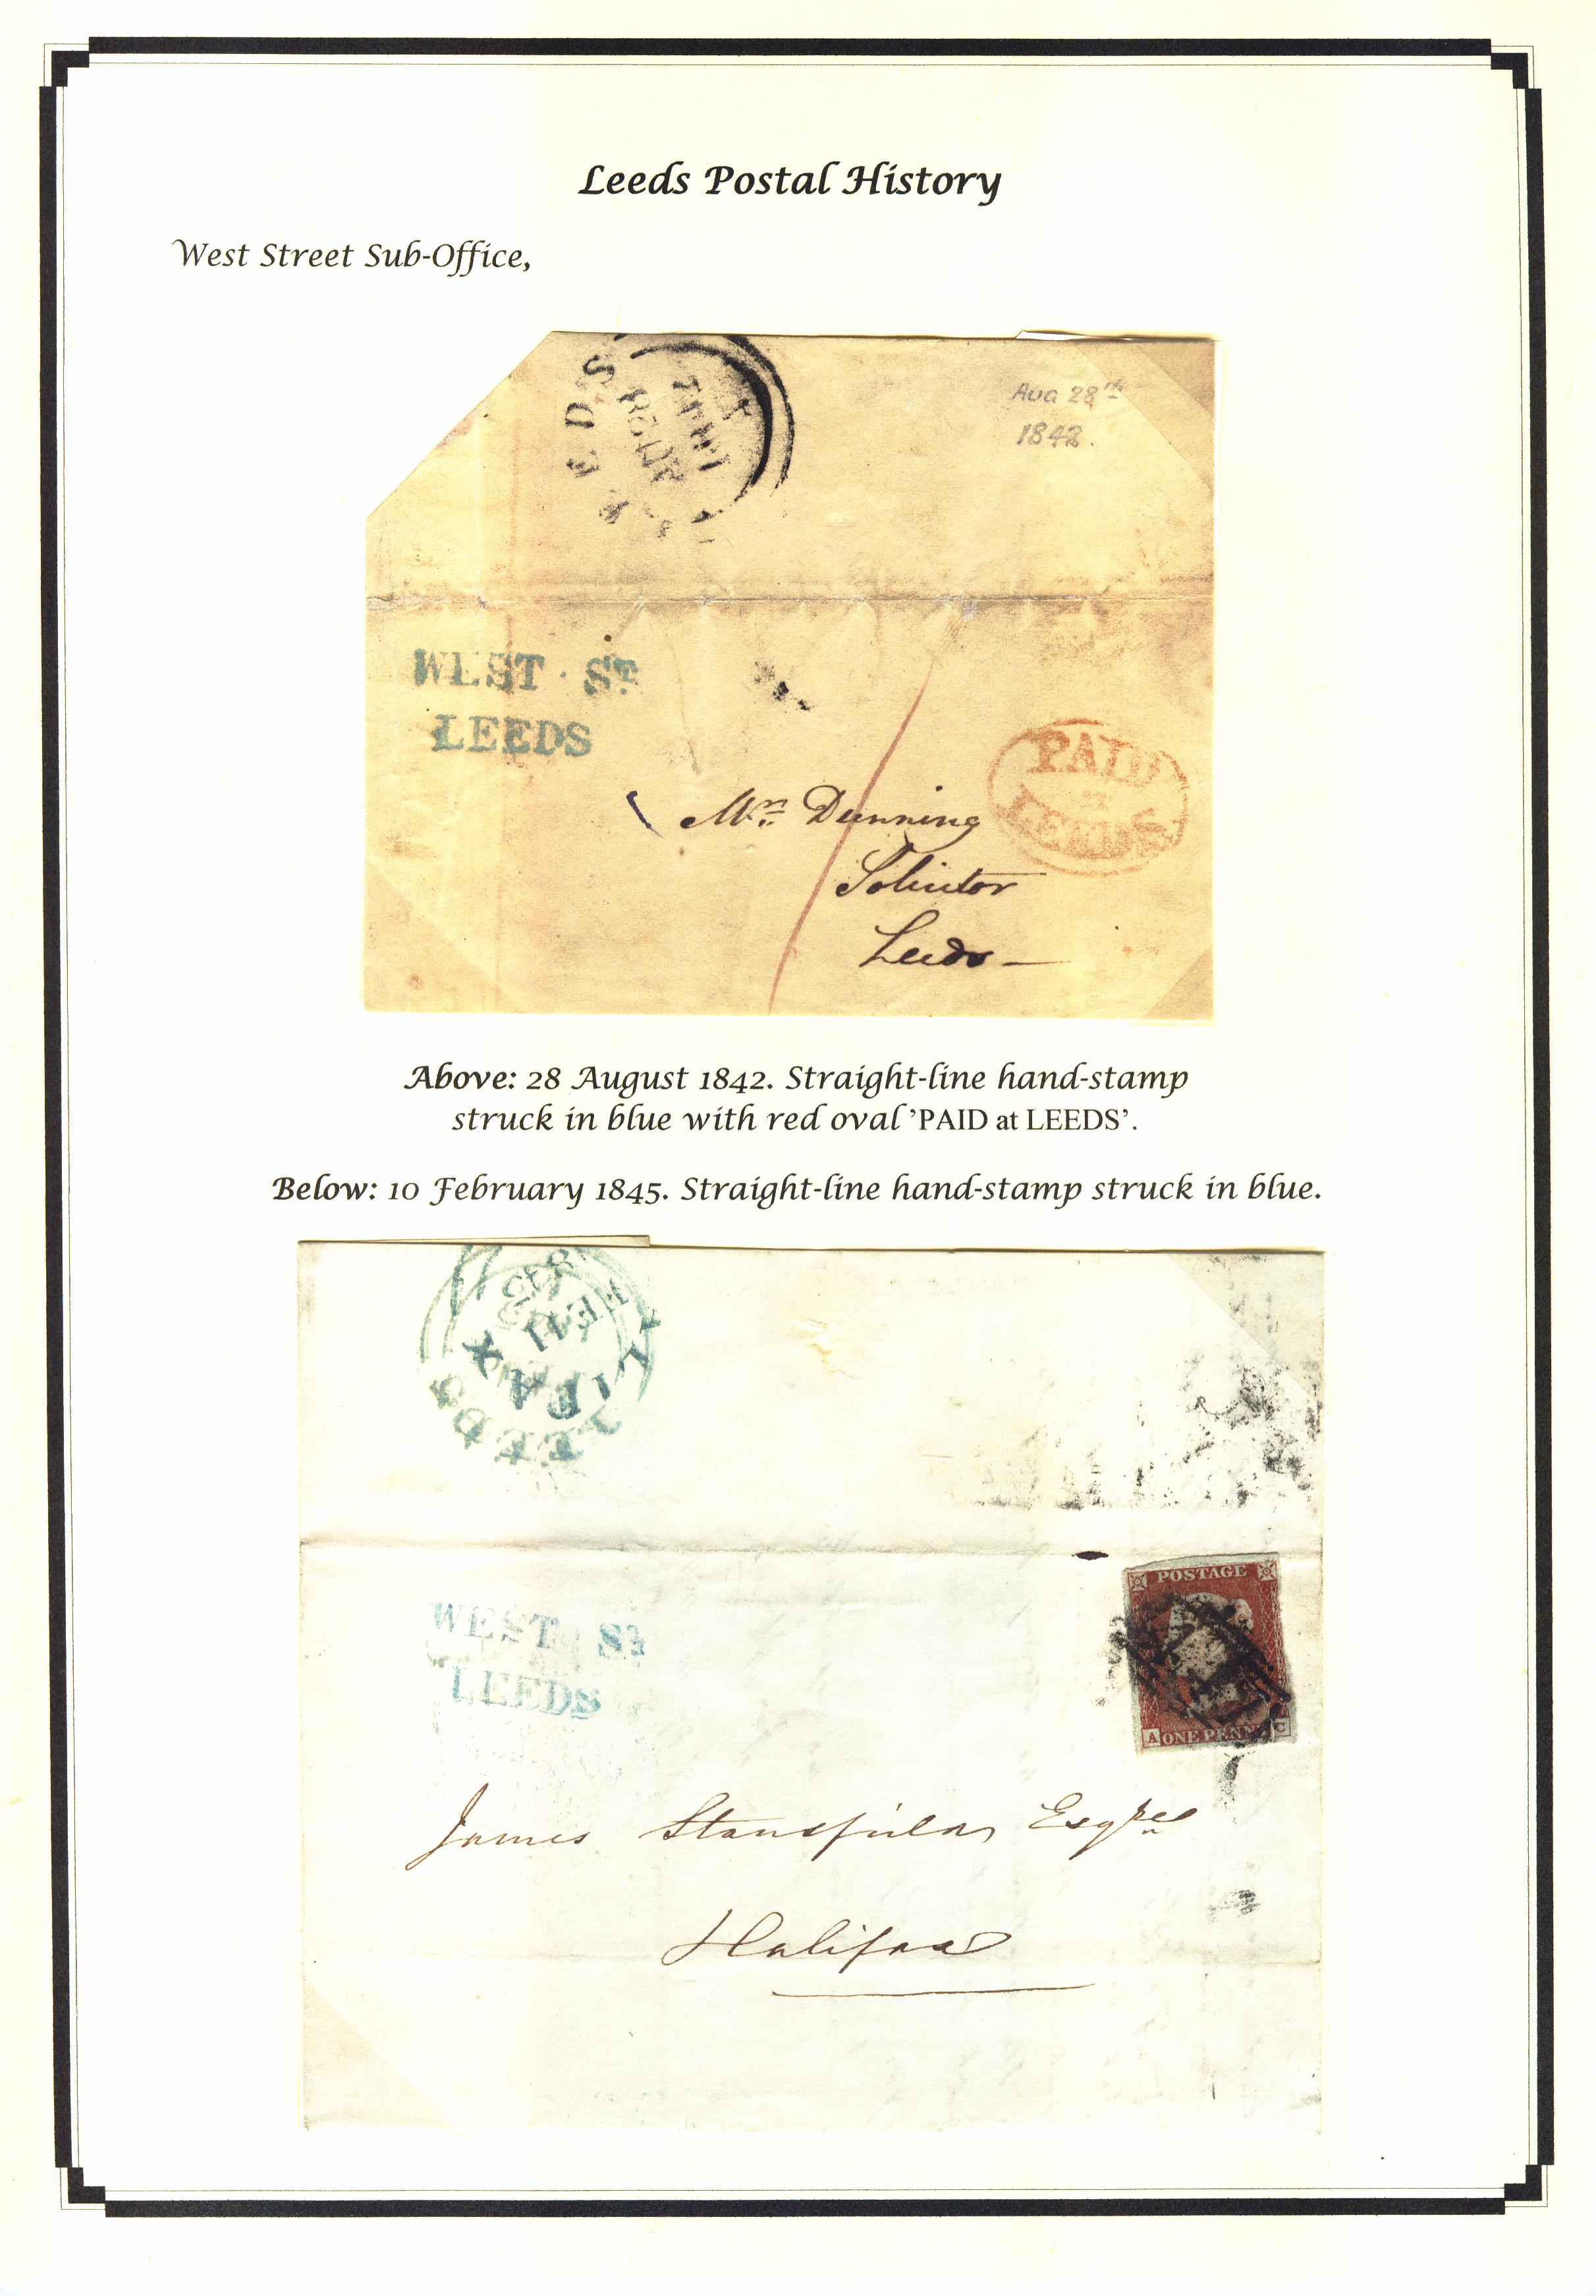 Leeds Postal History
West Street Sub-Office,
EDS
Aug 28th
1842.
WEST · St
LEEDS
PAID
at
LEEDS
Mr Dunning
Solicitor
Leeds
Above: 28 August 1842. Straight-line hand-stamp
struck in blue with red oval 'PAID at LEEDS'.
Below: 10 February 1845. Straight-line hand-stamp struck in blue.
LIFAX
LEEDS
WEST St
LEEDS
POSTAGE
A ONE PENNY C
James Stansfield Esqre
Halifax